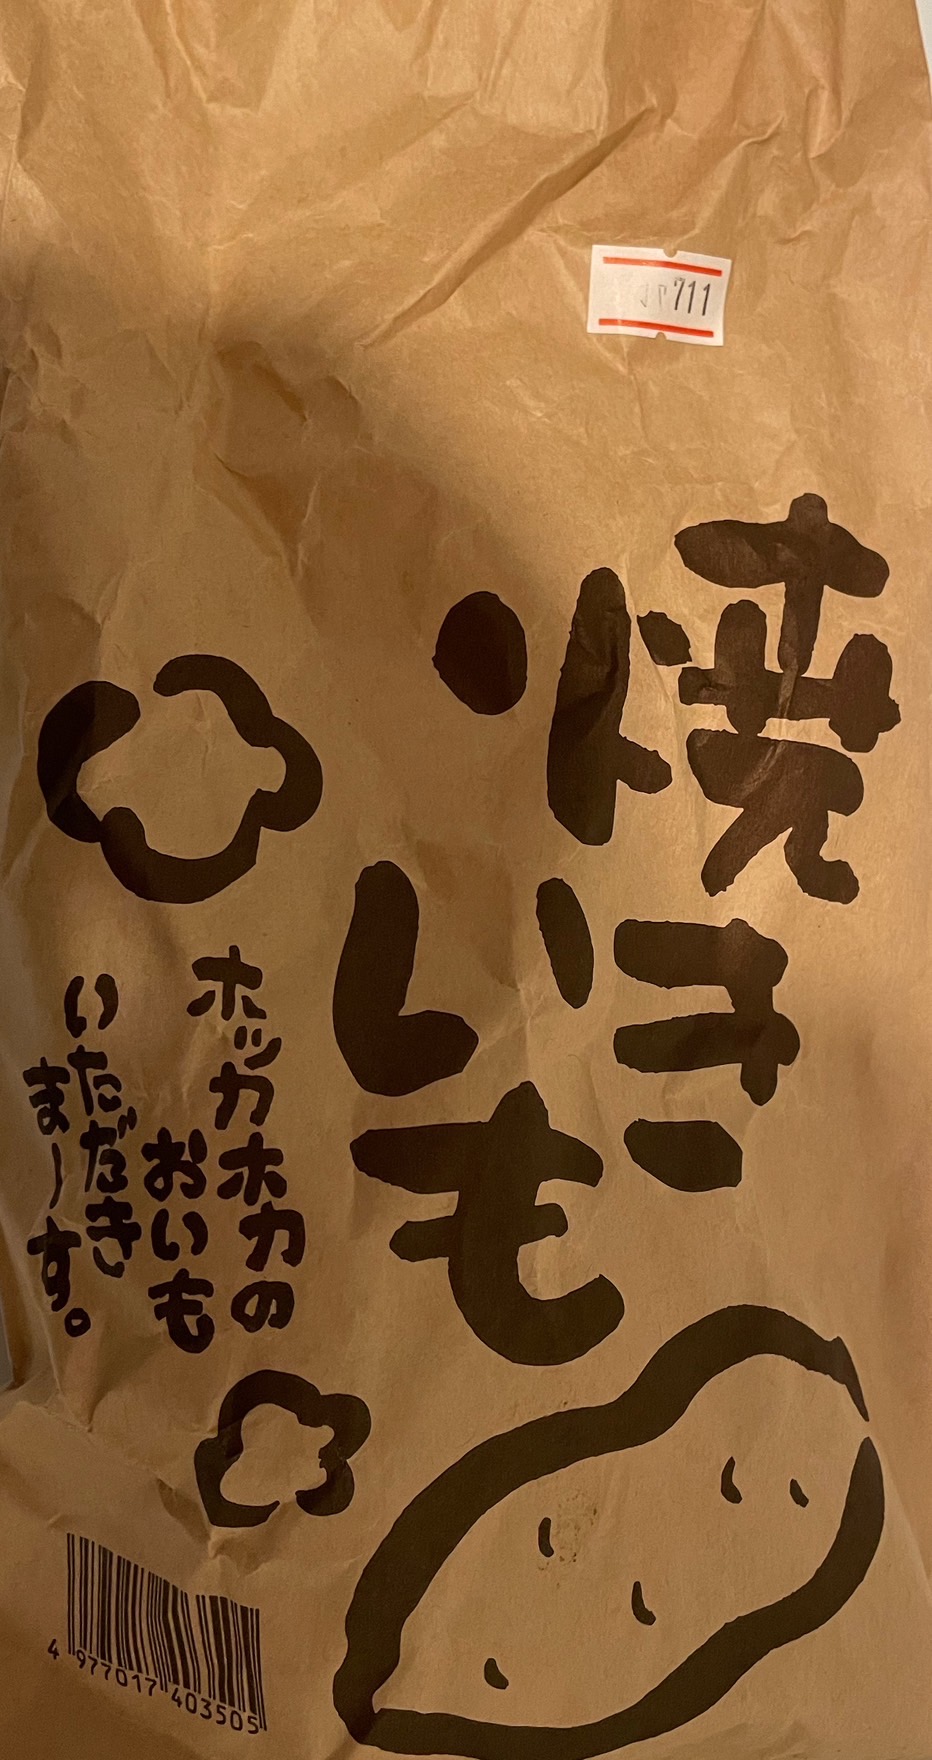 焼き
いも
ホッカホカの
おいも
いただき
まーす。
711
4 977017 403505